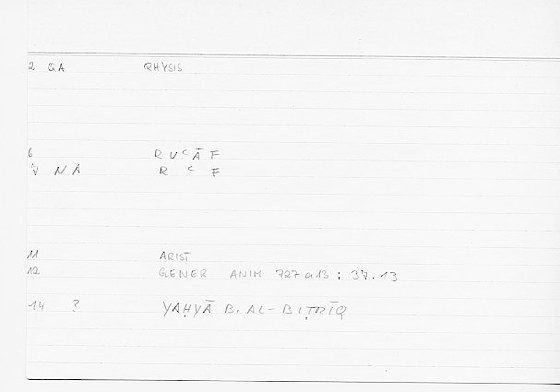 2 QA RHYSIS
6 RUʿĀF
7 NA RʿF
11 ARIST
12 GENER ANIM 727a13 : 37.13
14 ? YAḤYĀ B. AL-BIṬRĪQ